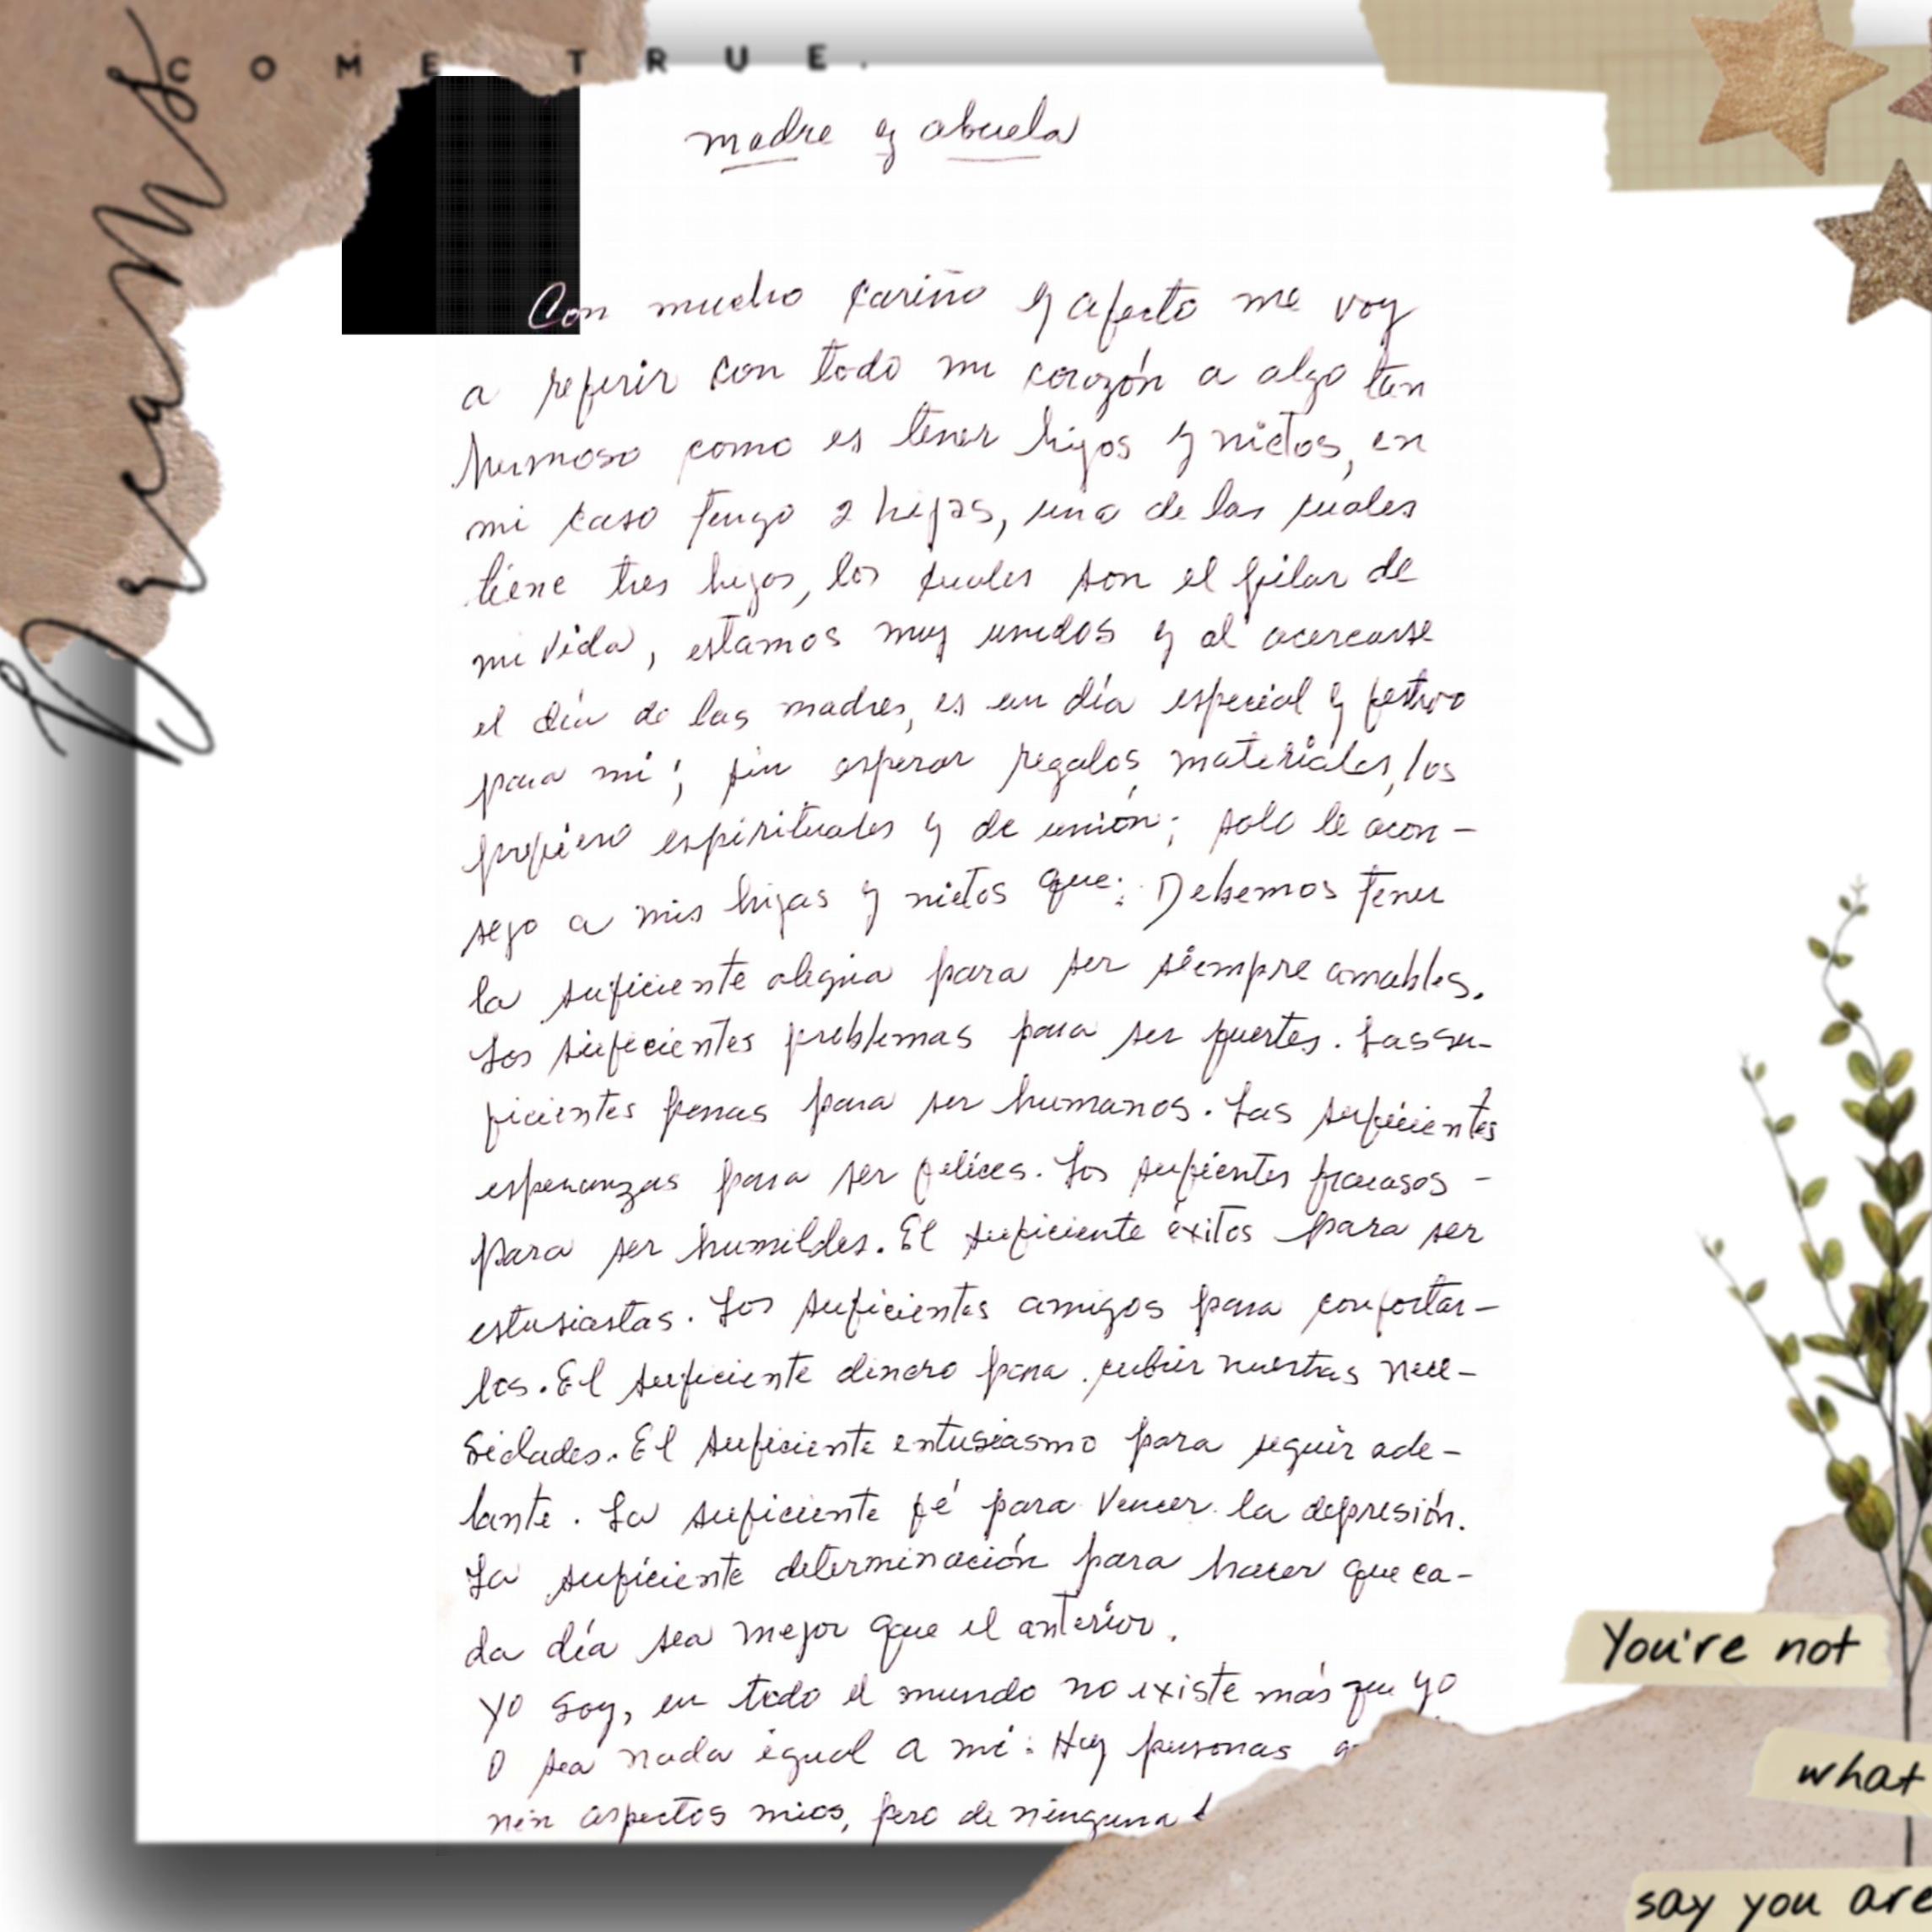 COME TRUE.
Dreams
madre y abuela
Con mucho cariño y afecto me voy
a referir con todo mi corozón a algo tan
hermoso como es tener hijos y nietos, en
mi caso tengo 2 hijas, una de las cuales
tiene tres hijos, los cuales son el pilar de
mi vida, estamos muy unidos y al acercarse
el día de las madres, es un día especial y festivo
para mí; sin esperar regalos, materiales, los
prefiero espirituales y de unión; solo le acon-
sejo a mis hijas y nietos que: Debemos tener
la suficiente alegria para ser siempre amables.
Los suficientes problemas para ser fuertes. Las su-
ficientes penas para ser humanos. Las suficientes
esperanzas para ser felices. Los sufientes fracasos -
para ser humildes. El suficiente éxitos para ser
estusiastas. Los suficientes amigos para confortar-
los. El suficiente dinero para cubrir nuestras nece-
sidades. El suficiente entusiasmo para seguir ade-
lante. La suficiente fé para vencer la depresión.
La suficiente determinación para hacer que ca-
da día sea mejor que el anterior.
Yo soy, en todo el mundo no existe más que yo
o sea nada igual a mi: Hay personas
nen aspectos mios, pero de ninguna
You're not
what
say you are